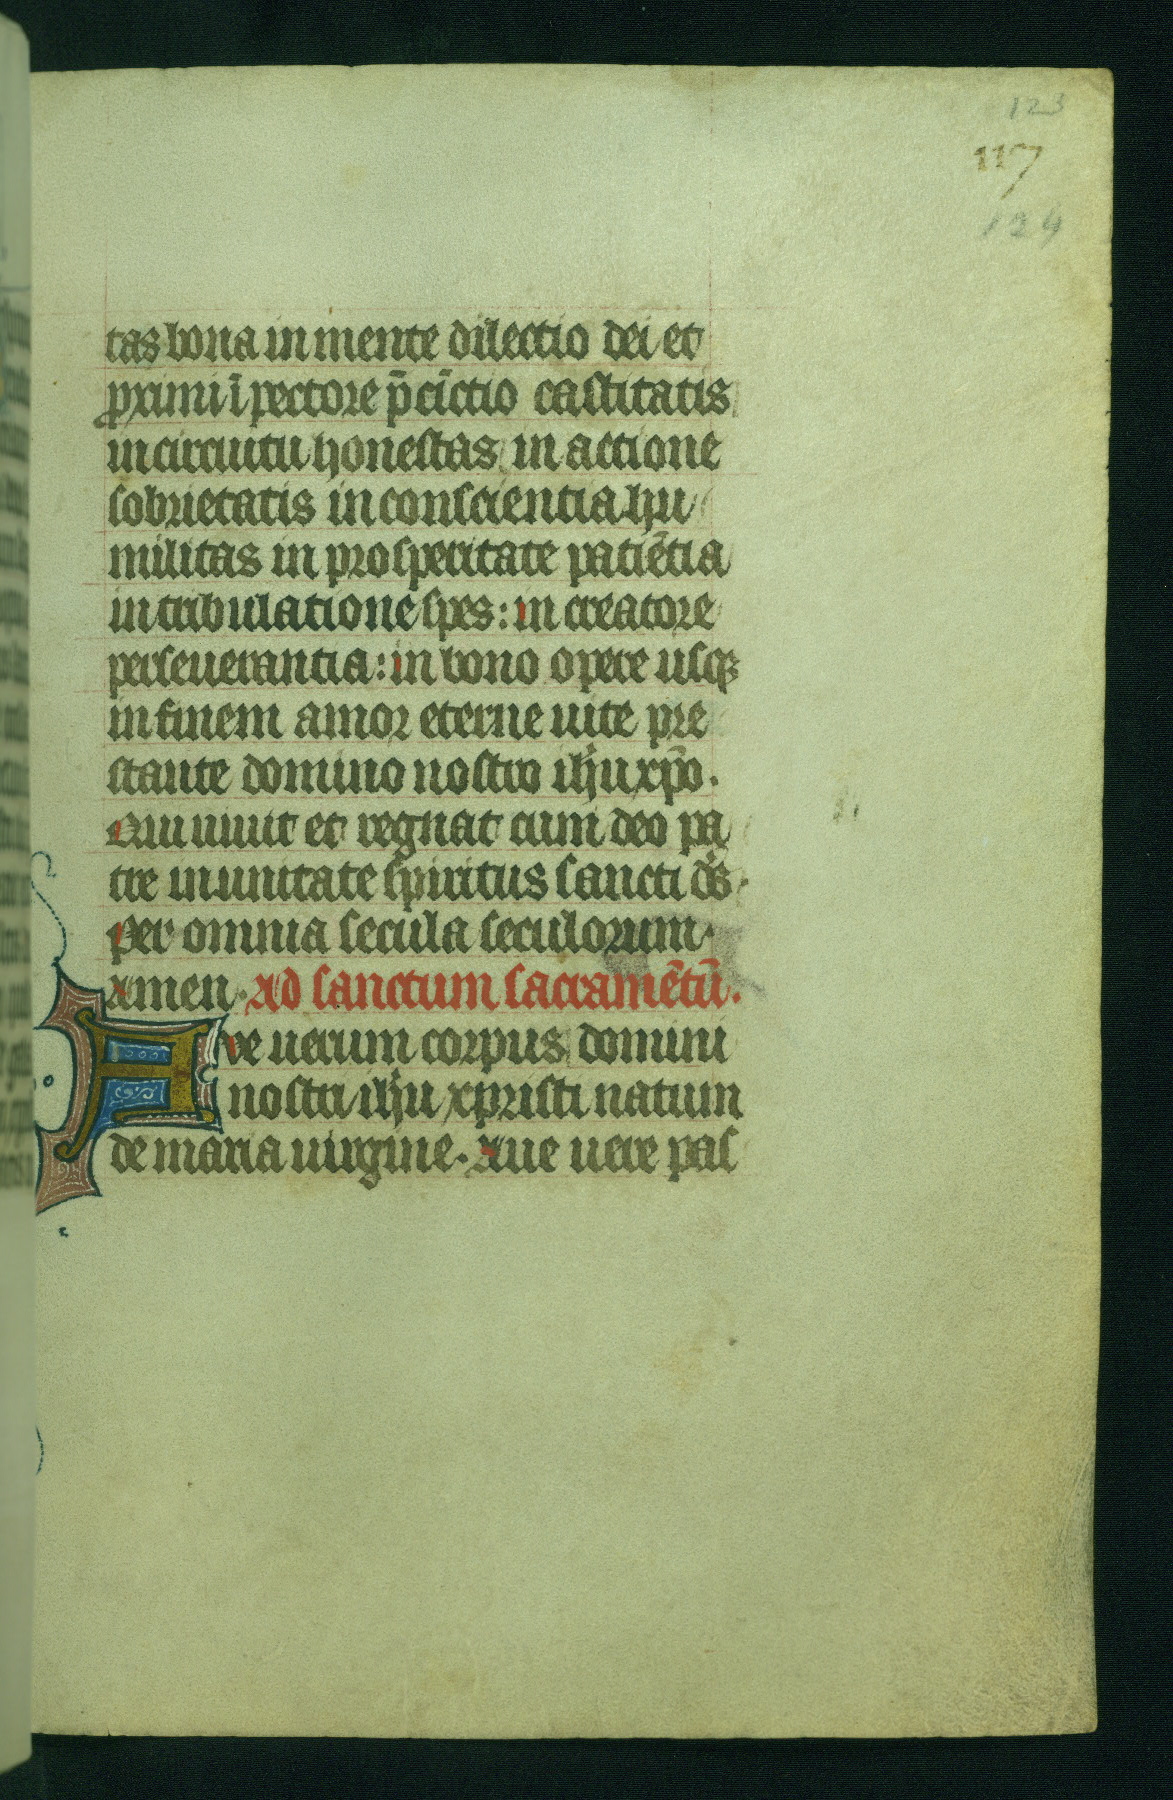 123
117
124
tas bona in mente dilectio dei et
ꝓximi ī pectore p̄cīctio castitatis
in circuitu honestas in actione
sobrietatis in conscientia hu
militas in prosperitate patiētia
in tribulatione spes: in creatore
perseuerantia: in bono opere usqꝫ
in finem amor eterne uite pre
stante domino nostro ihu xp̄o.
Qui uiuit et regnat cum deo pa
tre in unitate spiritus sancti d̄s.
Per omnia secula seculorum.
Amen. Ad sanctum sacramētū.
Ave uerum corpus domini
nostri ihu xpristi natum
de maria uirgine. Aue uere pas